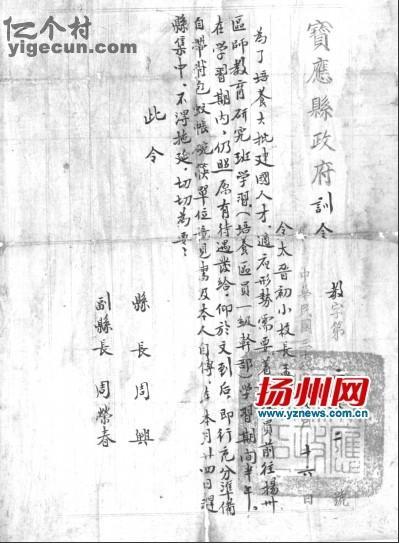 亿个村
yigecun.com
寶應縣政府訓令
教字第 號
中華民國三十
十六日
令太晉初小校長孟
為了培養大批建國人才,適應形勢需要,着 員前往揚州
區師教育研究班学習(培養區員一級幹部)学習期间半年。
在学習期內,仍照原有待遇發给,仰於文到后,即行充分準備
自带背包蚊帳碗筷單位意見書及本人自傳,在本月廿四日湜
縣集中,不得拖延,切切為要:
此令
縣長周興
副縣長周榮春
扬州网
www.yznews.cn